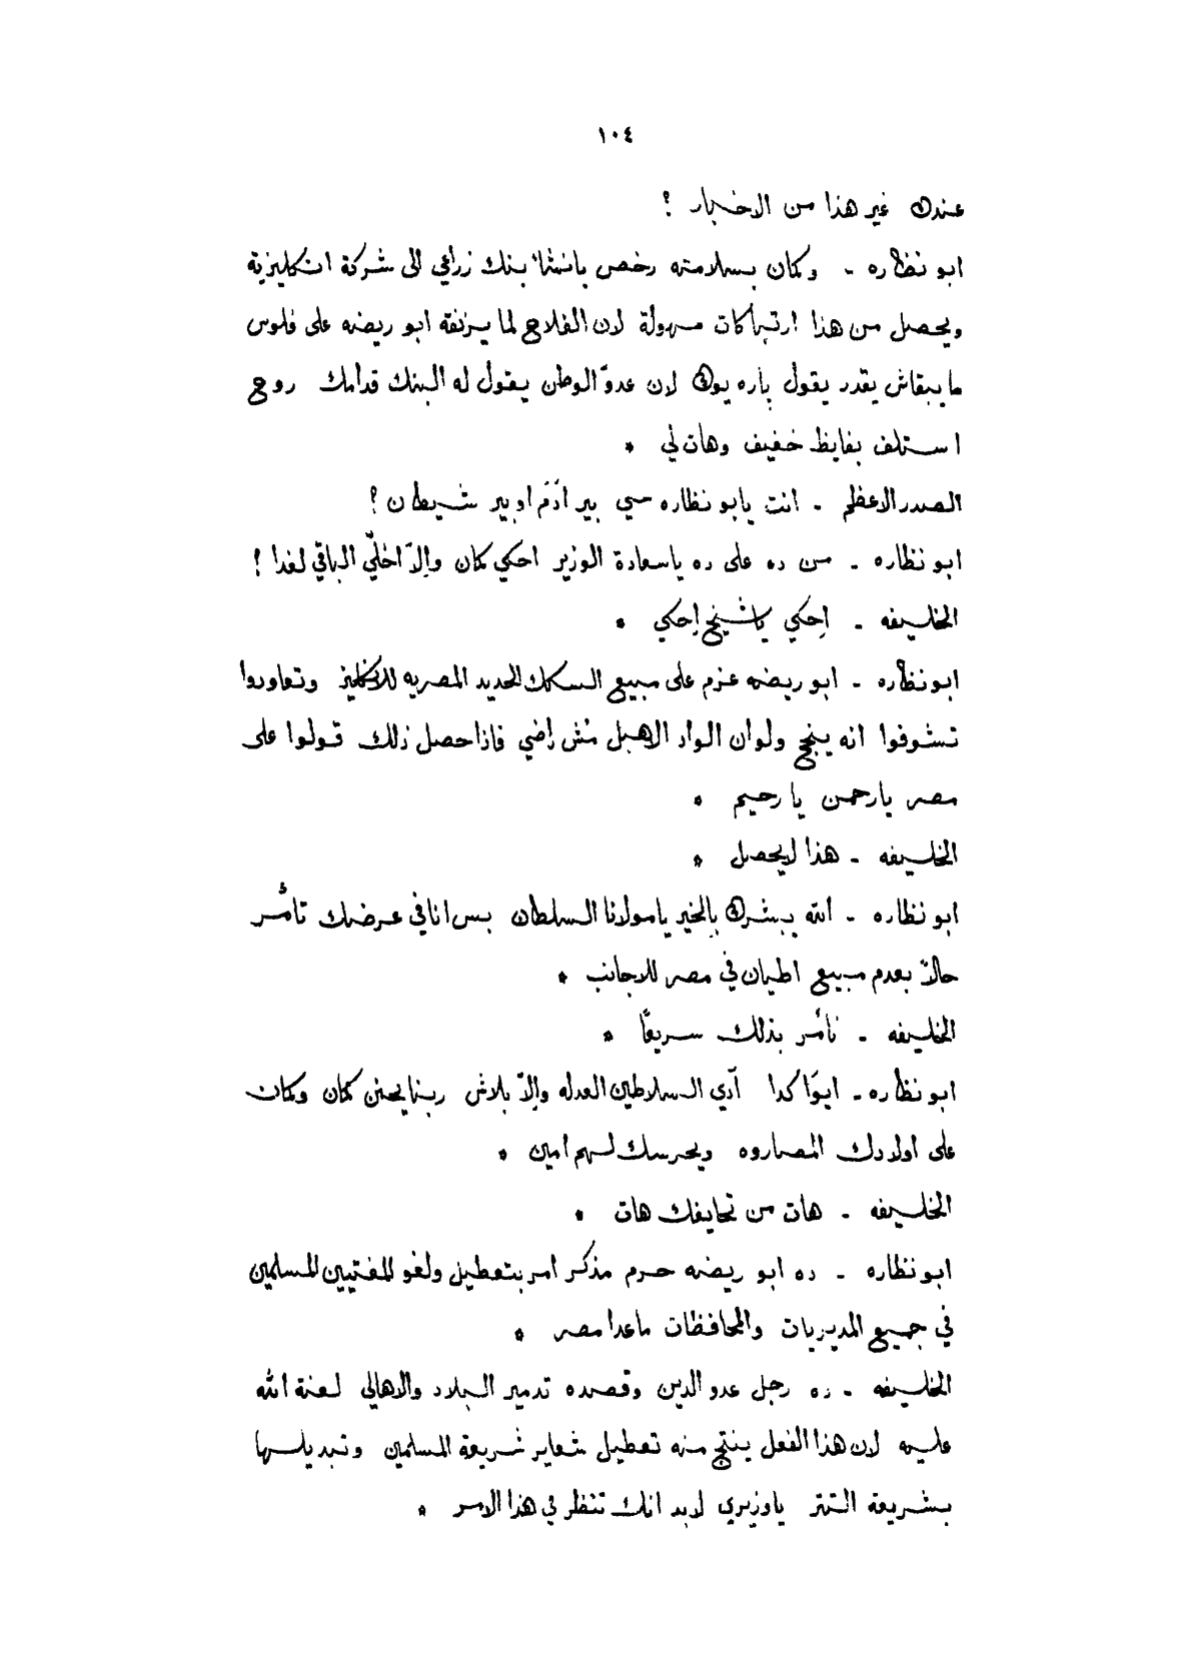 ١٠٤
عندك غير هذا من الاخبار ؟
ابو نظاره - وكمان بسلامته رخص بانشاء بنك زراعي الى شركة انكليزية
ويحصل من هذا ارتباكات مهولة لان الفلاح لما يزنقه ابو ريضه على فلوس
ما يبقاش يقدر يقول پاره يوك لان عدوّ الوطن يقول له البنك قدامك روح
استلف بفايظ خفيف وهات لي *
الصدر الاعظم - انت يابو نظاره سي بير ادَم او بير شيطان ؟
ابو نظاره - من ده على ده ياسعادة الوزير احكي كمان والاّ اخلّي الباقي لغدا !
الخليفه - اِحكي ياشيخ اِحكي *
ابو نظاره - ابو ريضه عزم على مبيع السكك الحديد المصريه للانكليز وتعاودوا
تشوفوا انه ينجح ولو ان الواد الاهبل مش راضي فاذا حصل ذلك قولوا على
مصر يارحمن يا رحيم *
الخليفه - هذا لا يحصل *
ابو نظاره - الله يبشرك بالخير يامولانا السلطان بس انا في عرضك تأمُر
حالاً بعدم مبيع اطيان في مصر للاجانب *
الخليفه - نأمُر بذلك سريعًا *
ابو نظاره - ايوَا كدا آدي السلاطين العدله والاّ بلاش ربنا يحنن كمان وكمان
على اولادك المصاروه ويحرسك لهم امين *
الخليفه - هات من تحايفك هات *
ابو نظاره - ده ابو ريضه حرم مذكر امر بتعطيل ولغو المفتيين المسلمين
في جميع المديريات والمحافظات ماعدا مصر *
الخليفه - ده رجل عدو الدين وقصده تدمير البلاد والاهالي لعنة الله
عليه لان هذا الفعل ينتج منه تعطيل شعاير شريعة المسلمين وتبديلها
بشريعة التتر ياوزيري لابد انك تنظر في هذا الامر *